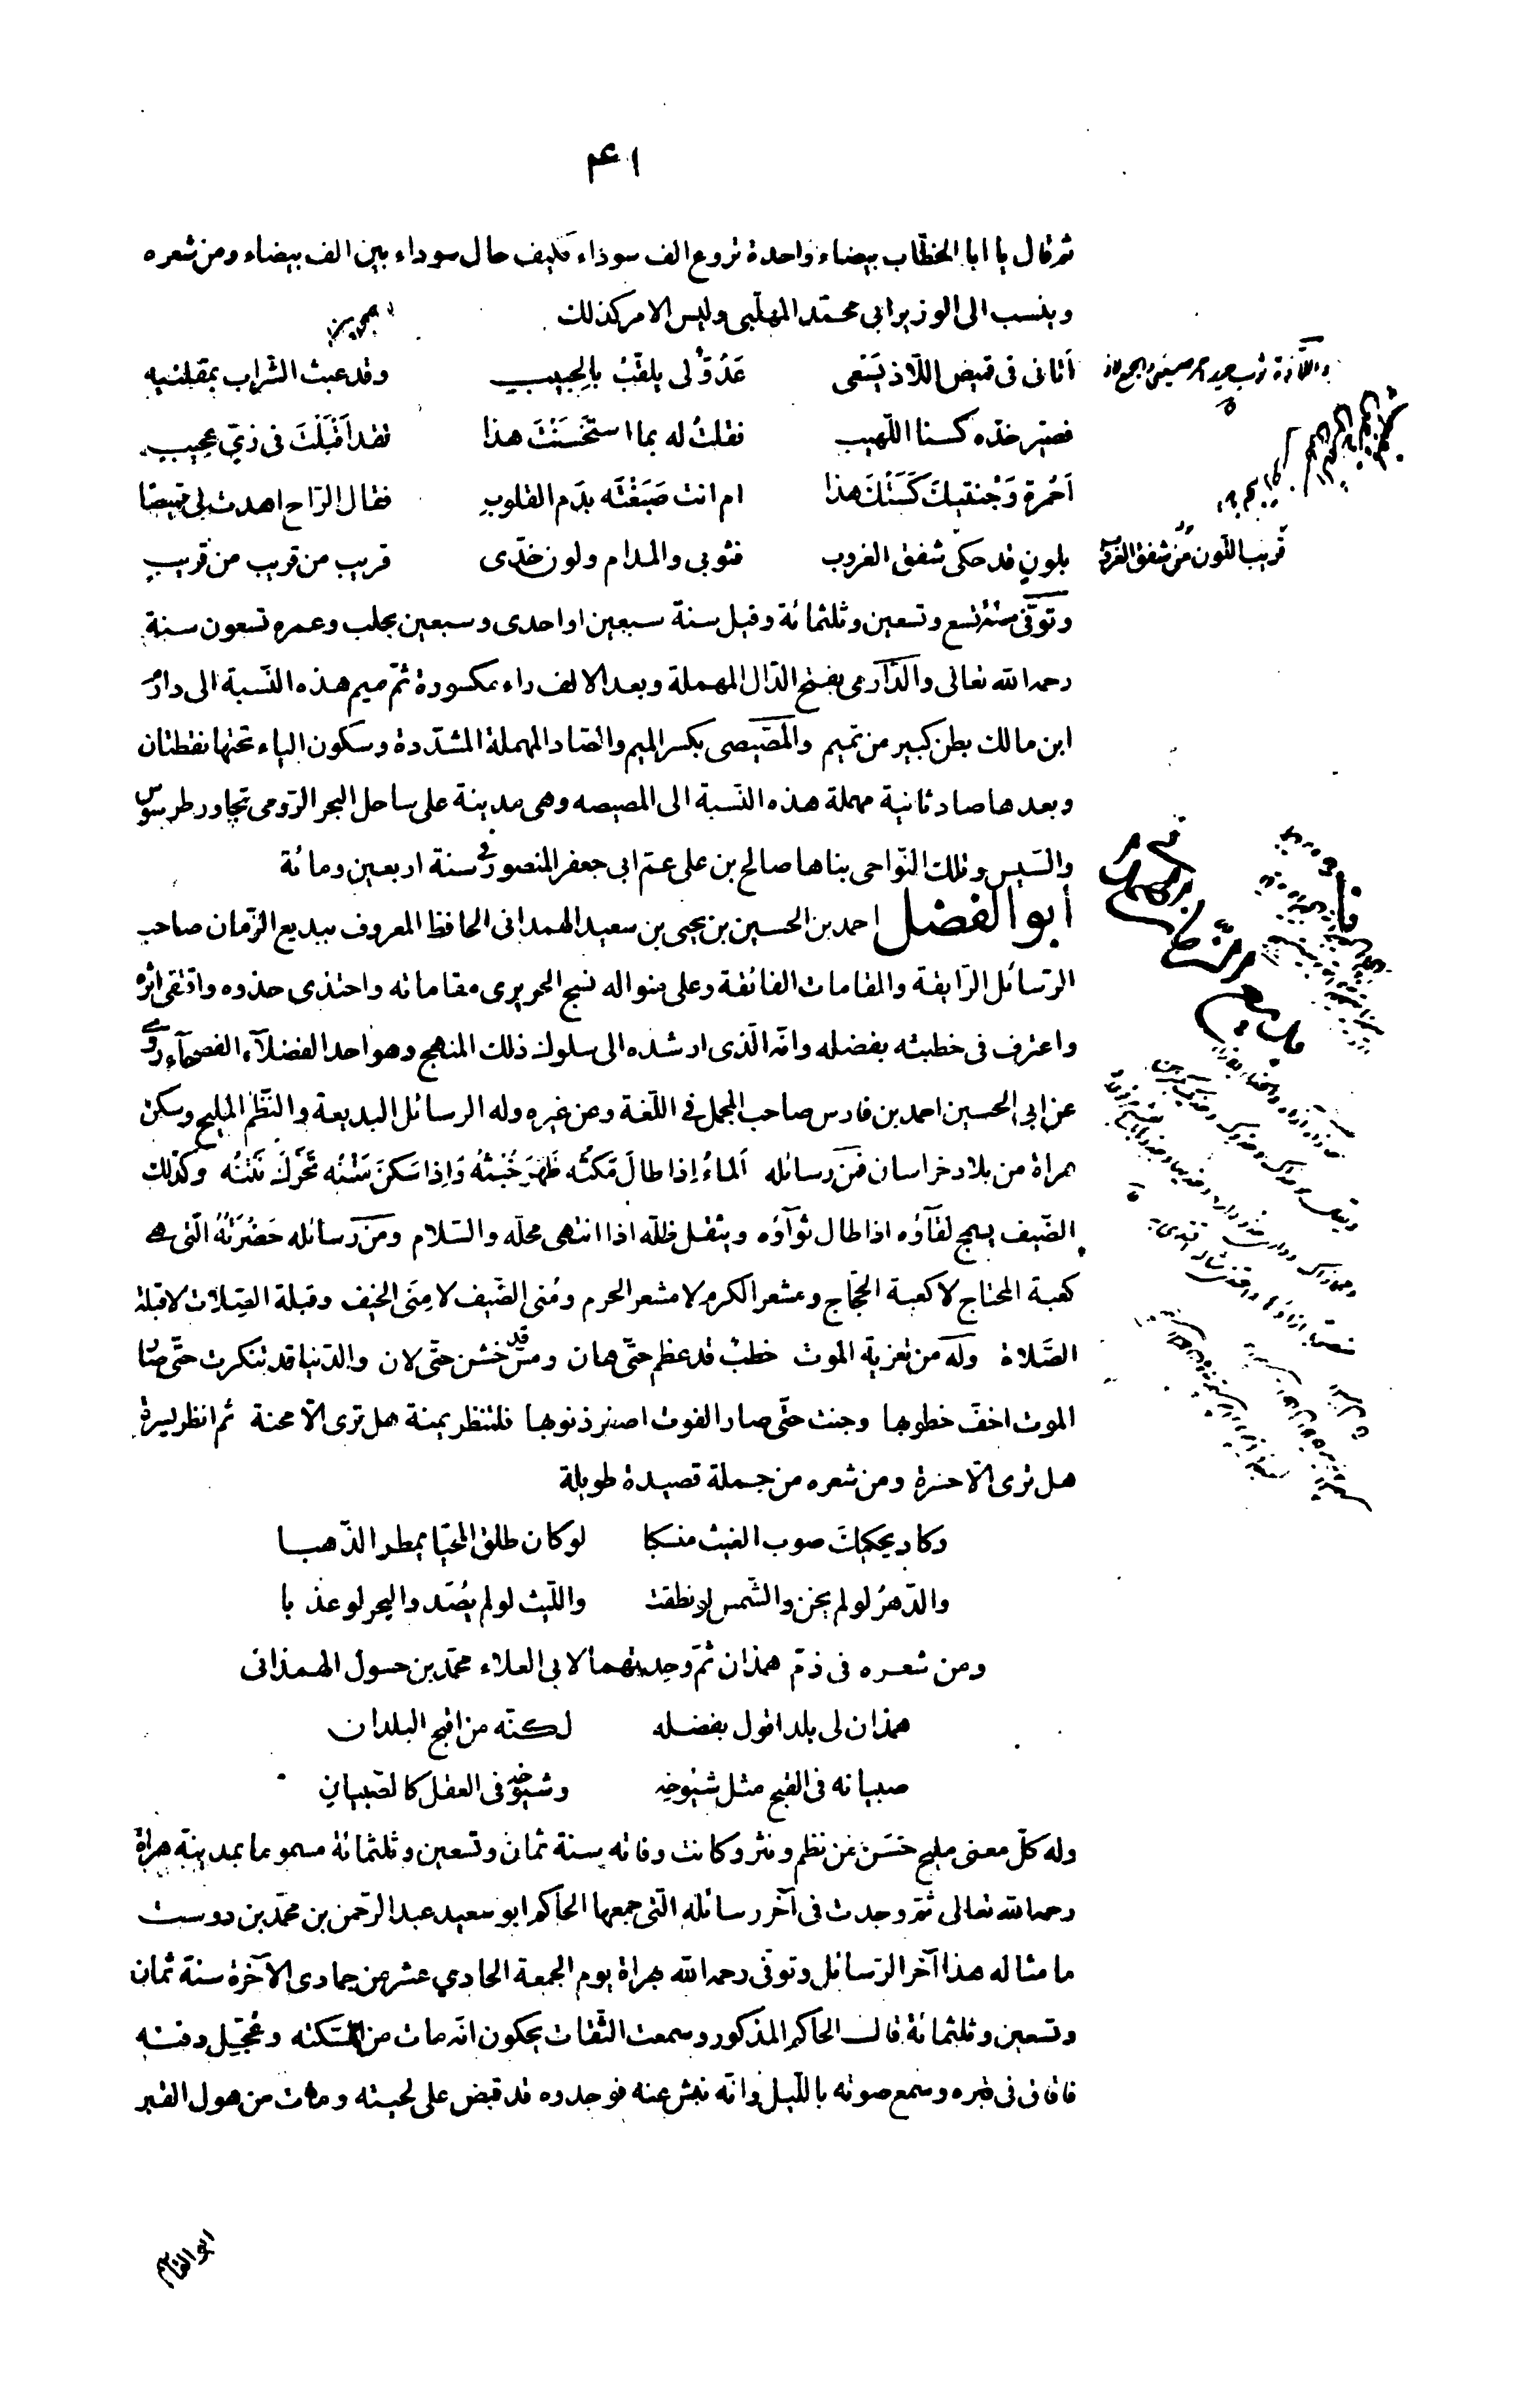 ٤١
ثم قال يا ابا الخطّاب بيضاء واحدة تروع الف سوداء فكيف حال سوداء بين الف بيضاء ومن شعره
وينسب الى الوزير ابى محمّد المهلّبى وليس الامر كذلك
أتانى فى قميص اللّاذ يَسْعى عَدُوٌّ لى يلقّبُ بالحبيب وقد عبث الشّراب بمقلتيه
فصيّر خدّه كسنا اللّهيب فقلتُ له بما استَحْسَنْتَ هذا فقد اَقْبَلْتَ فى زىّ عجيب
اَحُمرة وَجْنتيكَ كَسَتْكَ هذا ام انت صَبَغْتَه بدَم القلوبِ فقال الرّاح اهدت لى قميصًا
بلونٍ قد حكى شفق الغروب فثوبى والمدام ولون خدّى قريب من قريب من قريبٍ
قريب اللّون من شفق الغروب
وتوفّى سنة تسع وتسعين وثلثمائة وقيل سنة سبعين او احدى وسبعين بحلب وعمره تسعون سنة
رحمه الله تعالى والدّارمى بفتح الدّال المهملة وبعد الالف راء مكسورة ثمّ ميم هذه النّسبة الى دارم
ابن مالك بطن كبير من تميم والمصّيصى بكسر الميم والصّاد المهملة المشدّدة وسكون الياء تحتها نقطتان
وبعدها صاد ثانية مهملة هذه النّسبة الى المصيصه وهى مدينة على ساحل البحر الرّومى تجاور طرسوس
والسّيس وتلك النّواحى بناها صالح بن على عمّ ابى جعفر المنصور فى سنة اربعين ومائة
أبو الفضل احمد بن الحسين بن يحيى بن سعيد الهمدانى الحافظ المعروف ببديع الزّمان صاحب
الرّسائل الرّايقة والمقامات الفائقة وعلى منواله نسج الحريرى مقاماته واحتذى حذوه واقتفى اثره
واعترف فى خطبته بفضله وانّه الّذى ارشده الى سلوك ذلك المنهج وهو احد الفضلآء الفصحآء روى
عن ابى الحسين احمد بن فارس صاحب المجمل فى اللّغة وعن غيره وله الرسائل البديعة والنّظم المليح وسكن
هراة من بلاد خراسان فمن رسائله اَلماءُ إذا طالَ مَكثُه ظَهَرَ خُبثُهُ وَاِذا سَكنَ مَتْنُه تَحرَّكَ نَتْنُه وكذلك
الضّيف يسمج لقآؤه اذا طال ثوآؤه ويثقل ظلّه اذا انتهى محلّه والسّلام ومن رسائله حَضْرَتُهُ الّتى هى
كعبة المحتاج لا كعبة الحجّاج ومشعر الكرم لا مشعر الحرم ومُنى الضّيف لا مِنَى الخيف وقبلة الصِّلات لا قبلة
الصَّلاة وله من تعزية الموت خطبٌ قد عظم حتّى هان ومسّ قد خشن حتّى لان والدّنيا قد تنكرت حتّى صار
الموت اخفّ خطوبها وجنت حتّى صار الفوت اصغر ذنوبها فلتنظر يمنة هل ترى الّا محنة ثم انظر يسرة
هل ترى الّا حسرة ومن شعره من جملة قصيدة طويلة
وكاد يحكيك صوب الغيث منسكبا لو كان طلق المحيّا يمطر الذّهبا
والدّهرُ لو لم يخن والشّمس لو نطقت والليث لو لم يُصَد والبحر لو عذبا
ومن شعره فى ذمّ همذان ثمّ وجدتهما لابى العلاء محمّد بن حسول الهمذانى
همذان لى بلد اقول بفضله لكنّه من اقبح البلدان
صبيانه فى القبح مثل شيوخه وشيوخه فى العقل كالصّبيان
وله كلّ معنى مليح حَسَن من نظم ونثر وكانت وفاته سنة ثمان وتسعين وثلثمائة مسموما بمدينة هراة
رحمه الله تعالى ثمّ وجدت فى آخر رسائله الّتى جمعها الحاكم ابو سعيد عبد الرّحمن بن محمّد بن دوست
ما مثاله هذا آخر الرّسائل وتوفّى رحمه الله بهراة يوم الجمعة الحادي عشر من جمادى الآخرة سنة ثمان
وتسعين وثلثمائة قال الحاكم المذكور وسمعت الثّقات يحكون انّه مات من السّكته وعُجّل دفنه
فافاق فى قبره وسمع صوته بالّليل وانّه نبش عنه فوجدوه قد قبض على لحيته ومات من هول القبر
ابو القاسم